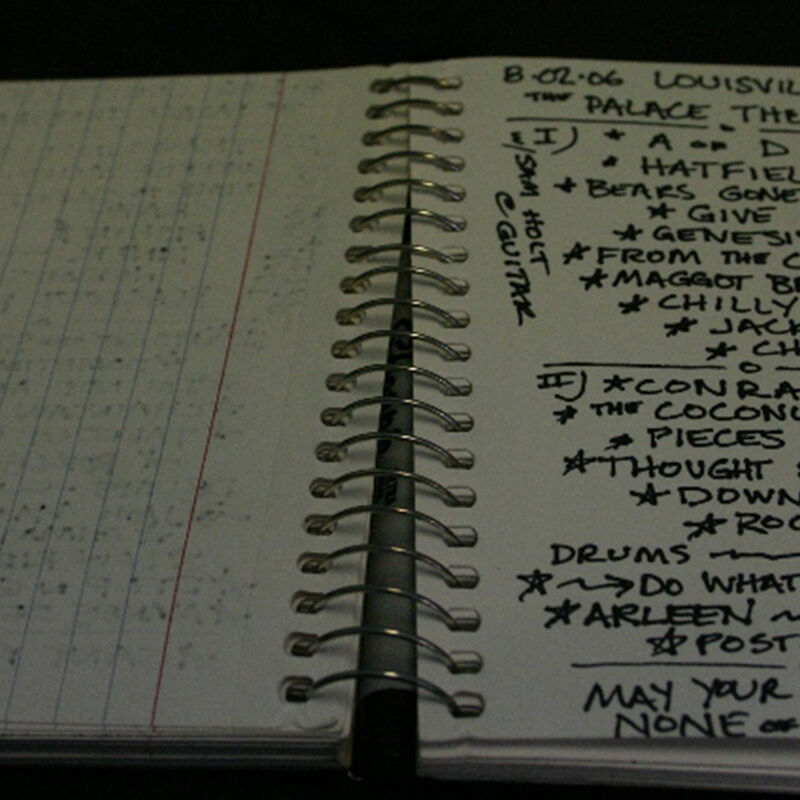 8·02·06 LOUISVIL
THE PALACE THE
I) * A OF D
w/SAM HOLT
@ GUITAR
* HATFIEL
* BEARS GONE
* GIVE
* GENESI
* FROM THE C
* MAGGOT B
* CHILLY
* JACK
* CH
II) * CONRA
* THE COCONU
* PIECES
* THOUGHT
* DOWN
* ROC
DRUMS
* ~> DO WHAT
* ARLEEN ~
* POST
MAY YOUR
NONE OF